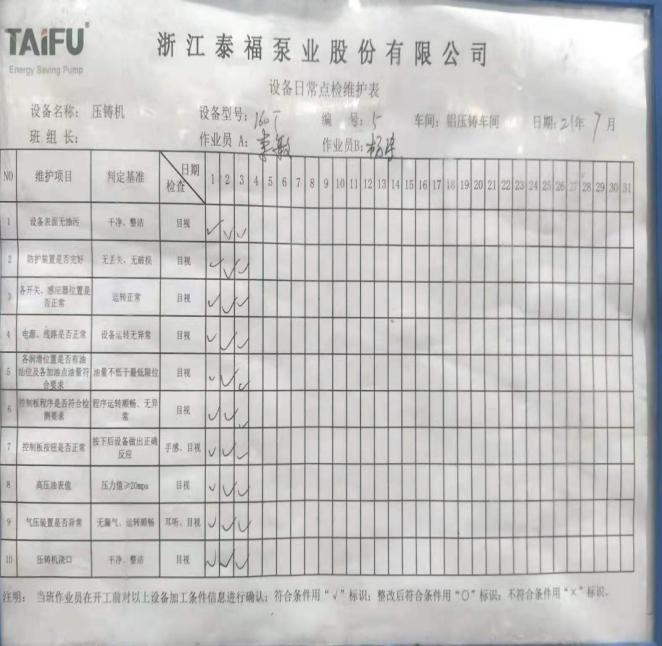 TAIFU
Energy Saving Pump
浙江泰福泵业股份有限公司
设备日常点检维护表
设备名称: 压铸机 设备型号: 160T 编 号: 5 车间: 铝压铸车间 日期: 21年 7月
班 组 长: 作业员 A: 作业员B:
NO 维护项目 判定基准 日期 检查 1 2 3 4 5 6 7 8 9 10 11 12 13 14 15 16 17 18 19 20 21 22 23 24 25 26 27 28 29 30 31
1 设备表面无油污 干净、整洁 目视 √ √ √
2 防护装置是否完好 无丢失、无破损 目视 √ √ √
3 各开关、感应器位置是否正常 运转正常 目视 √ √ √
4 电源、线路是否正常 设备运转无异常 目视 √ √ √
5 各润滑位置是否有油 油位及各加油点油量符合要求 油量不低于最低限位 目视 √ √ √
6 控制板程序是否符合检测要求 程序运转顺畅、无异常 目视 √ √ √
7 控制板按钮是否正常 按下后设备做出正确反应 手感、目视 √ √ √
8 高压油表值 压力值≥20mpa 目视 √ √ √
9 气压装置是否异常 无漏气、运转顺畅 耳听、目视 √ √ √
10 压铸机浇口 干净、整洁 目视 √ √ √
注明: 当班作业员在开工前对以上设备加工条件信息进行确认; 符合条件用“√”标识; 整改后符合条件用“O”标识; 不符合条件用“×”标识。